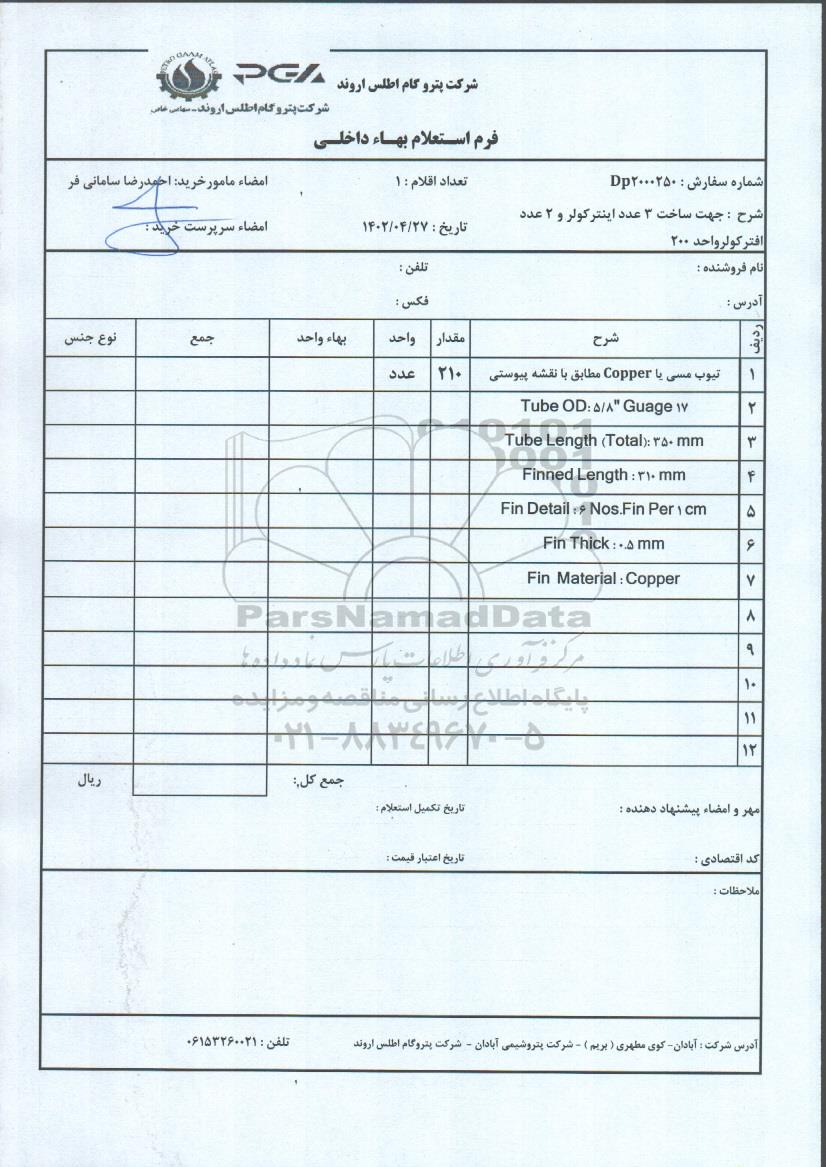 PETRO GAAM ATLAS
PGA
شرکت پترو گام اطلس اروند
شرکت پترو گام اطلس اروند - سهامی خاص
فرم استعلام بهاء داخلی
شماره سفارش : Dp۲۰۰۰۲۵۰
تعداد اقلام : ۱
امضاء مامور خرید: احمدرضا سامانی فر
شرح : جهت ساخت ۳ عدد اینترکولر و ۲ عدد
افترکولرواحد ۲۰۰
تاریخ : ۱۴۰۲/۰۴/۲۷
امضاء سرپرست خرید :
نام فروشنده :
تلفن :
آدرس :
فکس :
ردیف شرح مقدار واحد بهاء واحد جمع نوع جنس
۱ تیوب مسی یا Copper مطابق با نقشه پیوستی ۲۱۰ عدد
۲ Tube OD: ۵/۸" Guage ۱۷
۳ Tube Length (Total): ۳۵۰ mm
۴ Finned Length : ۳۱۰ mm
۵ Fin Detail : ۶ Nos.Fin Per ۱ cm
۶ Fin Thick : ۰.۵ mm
۷ Fin Material : Copper
۸
۹
۱۰
۱۱
۱۲
ParsNamadData
مرکز فرآوری اطلاعات پارس نماد داده ها
پایگاه اطلاع رسانی مناقصه و مزایده
۰۲۱-۸۸۳۴۹۶۷۰-۵
جمع کل:
ریال
مهر و امضاء پیشنهاد دهنده :
تاریخ تکمیل استعلام :
کد اقتصادی :
تاریخ اعتبار قیمت :
ملاحظات :
آدرس شرکت : آبادان- کوی مطهری ( بریم ) - شرکت پتروشیمی آبادان - شرکت پتروگام اطلس اروند
تلفن : ۰۶۱۵۳۲۶۰۰۲۱